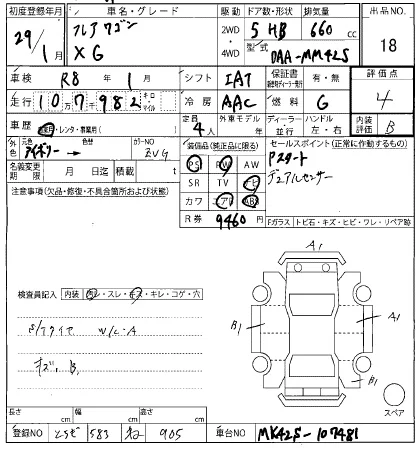 初度登録年月 車名・グレード 駆動 ドア数・形状 排気量 出品NO.
29年 1月 フレアワゴン 2WD 5 HB 660 cc 18
XG 4WD 型式 DAA-MM42S
車検 R8年 1月 シフト IAT 保証書 有・無 評価点
走行 107982 キロ・マイル 冷房 AAC 燃料 G 4
車歴 自家用・レンタ・事業用( ) 定員 4人 外車モデル 年 ディーラー・並行 ハンドル 左・右 内装評価 B
外色 元色 色替 カラーNO ZVG 装備品(純正品に限る) セールスポイント(正常に作動するもの)
名義変更期限 月 日迄 積載 t PS PW AW Pスタート
SR TV ナビ デュアルセンサー
注意事項(欠品・修復・不具合箇所および状態) カワ エアB ABS
R券 9460円
Fガラス トビ石・キズ・ヒビ・ワレ・リペア跡
A1
検査員記入 内装 ヨレ・スレ・キズ・キレ・コゲ・穴
B1 A1
W/L・A
キズ、B、 B1
スペア
長さ cm 幅 cm 高さ cm
登録NO とちぎ 583 905 車台NO MK42S-107481